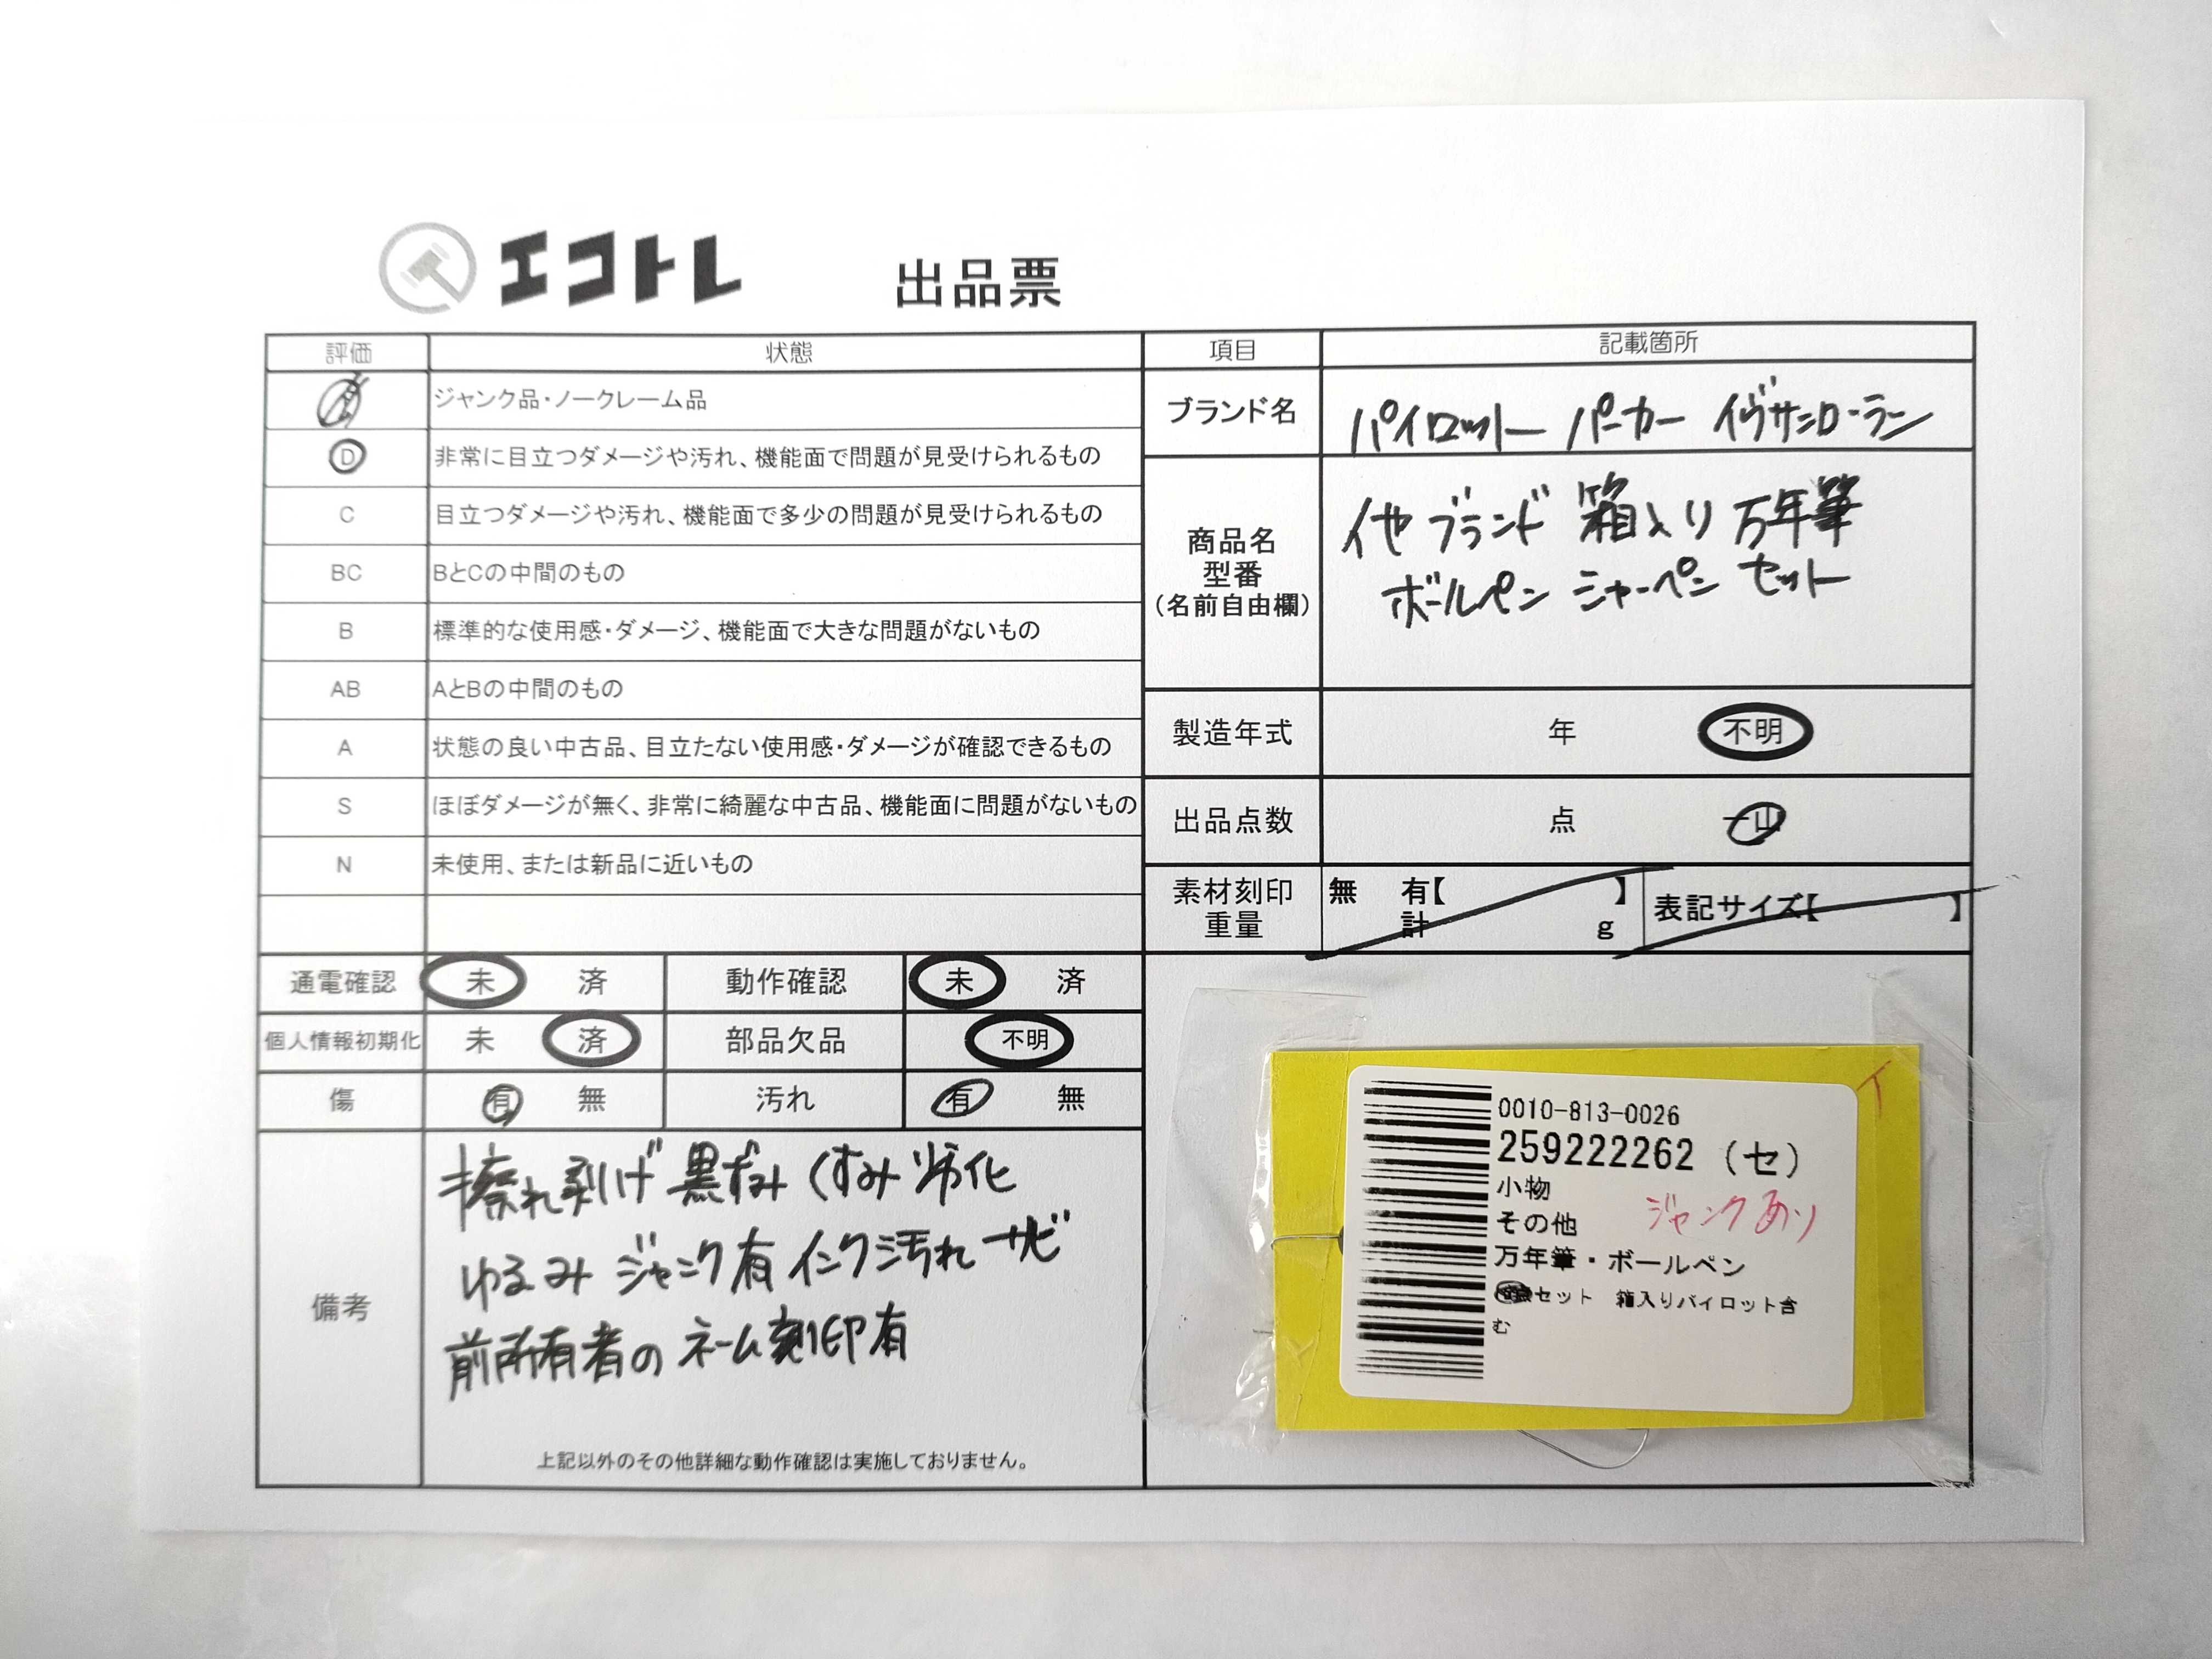 エコトレ 出品票
評価 状態
ジャンク品・ノークレーム品
D 非常に目立つダメージや汚れ、機能面で問題が見受けられるもの
C 目立つダメージや汚れ、機能面で多少の問題が見受けられるもの
BC BとCの中間のもの
B 標準的な使用感・ダメージ、機能面で大きな問題がないもの
AB AとBの中間のもの
A 状態の良い中古品、目立たない使用感・ダメージが確認できるもの
S ほぼダメージが無く、非常に綺麗な中古品、機能面に問題がないもの
N 未使用、または新品に近いもの
通電確認 未 済 動作確認 未 済
個人情報初期化 未 済 部品欠品 不明
傷 有 無 汚れ 有 無
備考
擦れ 剥げ 黒ずみ くすみ 劣化
ゆるみ ジャンク有 インク汚れ サビ
前所有者の ネーム刻印有
上記以外のその他詳細な動作確認は実施しておりません。
項目 記載箇所
ブランド名 パイロット パーカー イヴサンローラン
商品名
型番
(名前自由欄)
他ブランド 箱入り 万年筆
ボールペン シャーペン セット
製造年式 年 不明
出品点数 点 一山
素材刻印 無 有【 】
重量 計 g
表記サイズ【 】
0010-813-0026
259222262 (セ)
小物
その他 ジャンクあり
万年筆・ボールペン
セット 箱入りパイロット含
む